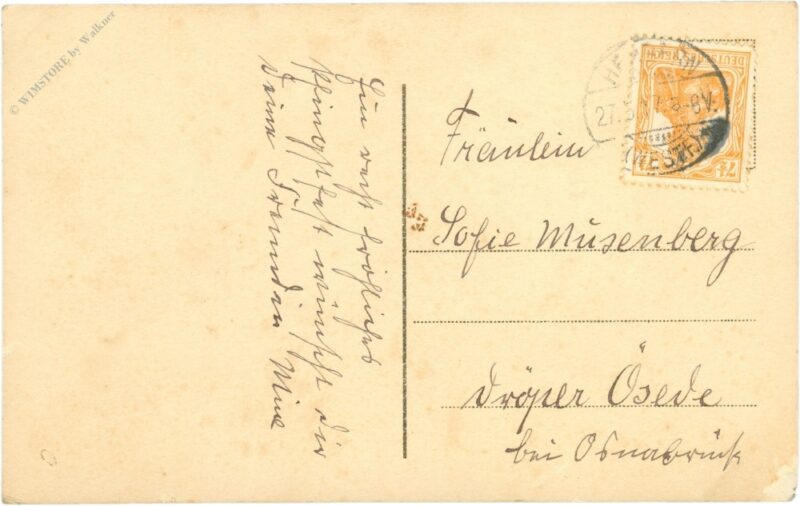 © WIMSTORE by Walkner
Ein recht fröhliches
Pfingstfest wünscht dir
deine Freundin Mine
DEUTSCHES REICH
7½
27.5. 6-8V.
(WESTF.)
Fräulein
Sofie Musenberg
Dröper Ösede
bei Osnabrück